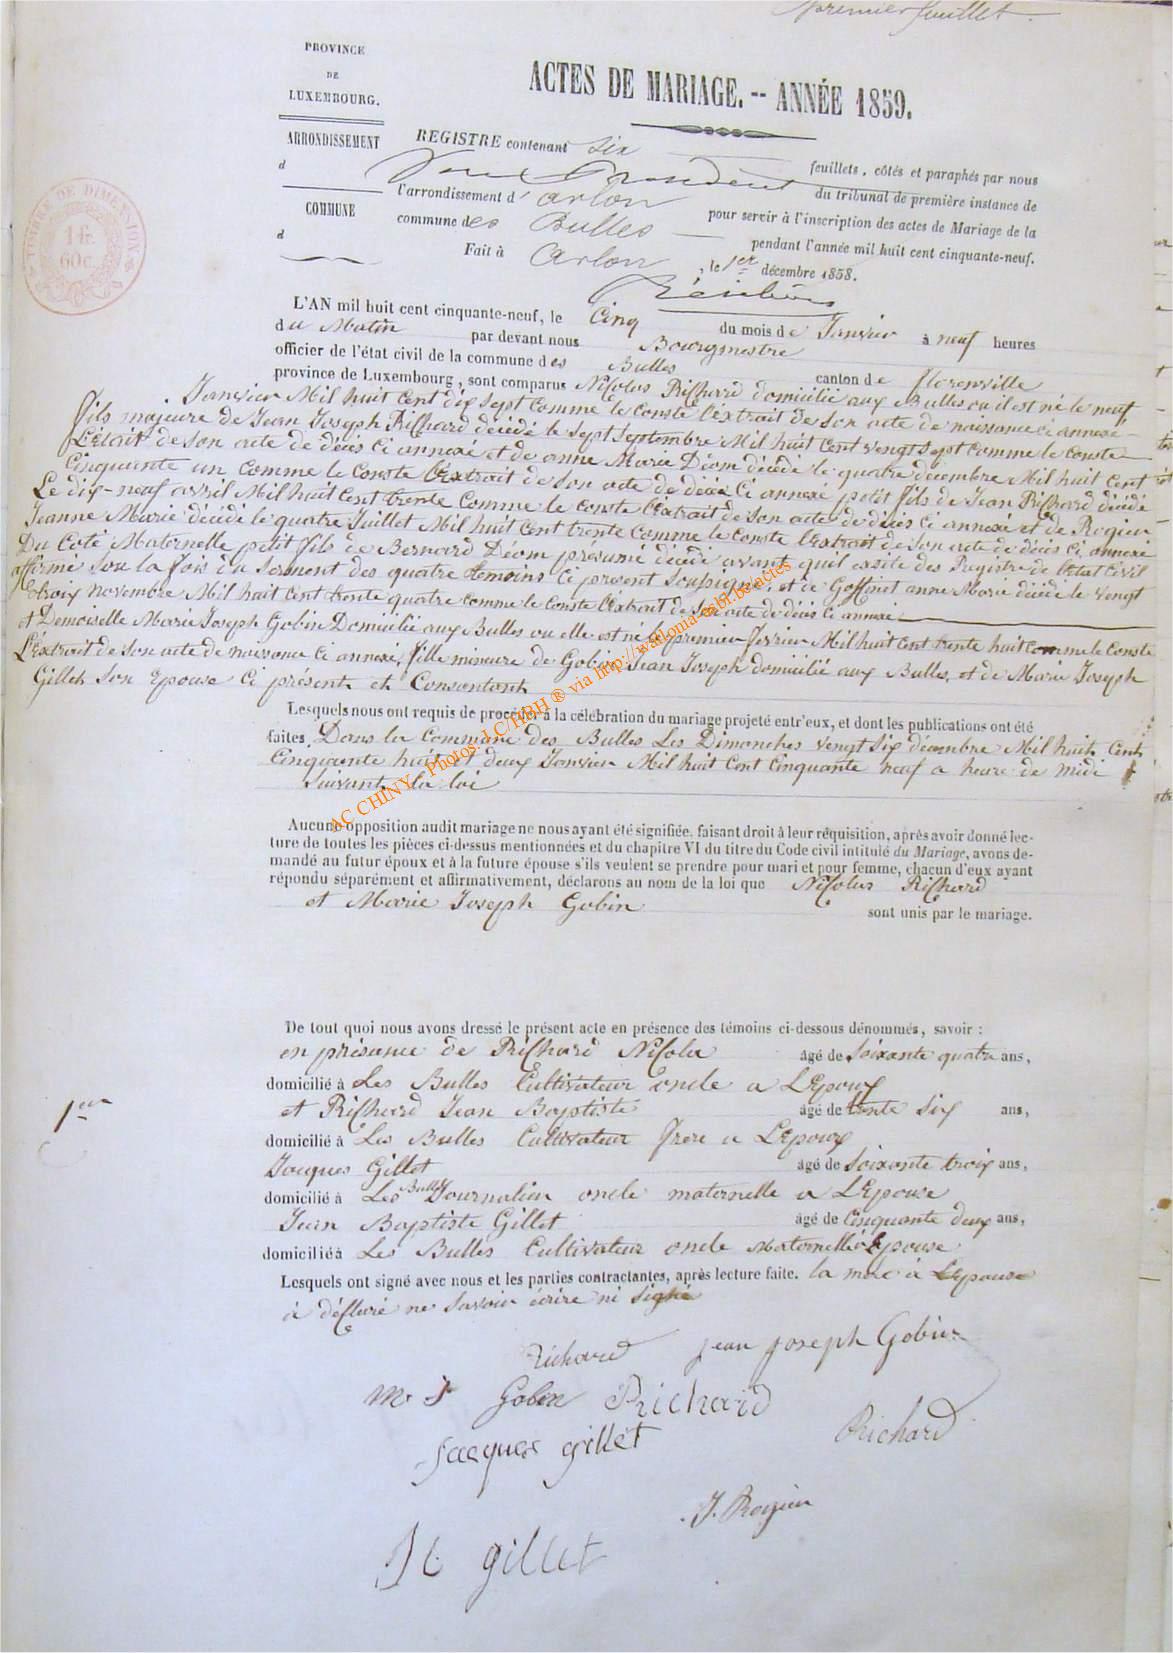 premier feuillet.
PROVINCE
DE
LUXEMBOURG.
ACTES DE MARIAGE. -- ANNÉE 1859.
ARRONDISSEMENT
d
COMMUNE
d
TIMBRE DE DIMENSION
1 fr.
60 c.
REGISTRE contenant six feuillets, côtés et paraphés par nous
President du tribunal de première instance de
l'arrondissement d' arlon pour servir à l'inscription des actes de Mariage de la
commune des Bulles pendant l'année mil huit cent cinquante-neuf.
Fait à Arlon, le 1er décembre 1858.
L'AN mil huit cent cinquante-neuf, le Cinq du mois de Janvier à neuf heures
du Matin par devant nous Bourgmestre
officier de l'état civil de la commune des Bulles canton de florenville
province de Luxembourg, sont comparus Nicolas Richard domicilié aux Bulles ou il est né le neuf
Janvier Mil huit Cent dix sept Comme le Conste l'éxtrait de son acte de naissance ci annexé
fils majeure de Jean Joseph Richard décédé le sept septembre Mil huit Cent vengt sept comme le conste
L'éxtait de son acte de décès ci annexé et de anne Marie Déom décèdé le quatre décembre Mil huit Cent
Cinquante un Comme le Conste l'éxtrait de son acte de décès ci annexé petit fils de Jean Richard décédé
Le dix-neuf avril Mil huit Cent trente Comme le conste l'éxtrait de son acte de décès ci annexé et de Rogier
Jeanne Marie décédé le quatre Juillet Mil huit Cent trente comme le conste l'éxtrait de son acte de décès ci annexé
Du Coté Maternelle petit fils de Bernard Déom présumé décèdé avant quil existe des Registre de l'état Civil
affirmé sou la fois du serment des quatre témoins ci present sousigné, et de Goffinet anne Marie décédé le vengt
troix novembre Mil huit Cent trente quatre comme le conste l'éxtrait de son acte de décès ci annexé
et Demoiselle Marie Joseph Gobin Domicilié aux Bulles ou elle est né le premier fevrier Mil huit Cent trente huit comme le conste
L'éxtrait de son acte de naissance ci annexé, fille mineure de Gobin Jean Joseph domicilié aux Bulles, et de Marie Joseph
Gillet Son Epouse ci présent et Consantant
Lesquels nous ont requis de procéder à la célébration du mariage projeté entr'eux, et dont les publications ont été
faites. Dans la Commune des Bulles Les Dimanches vengt six décembre Mil huit Cent
Cinquante huit et deux Janvier Mil huit Cent Cinquante neuf a heure de midi
Suivant la loi
Aucune opposition audit mariage ne nous ayant été signifiée, faisant droit à leur réquisition, après avoir donné lec-
ture de toutes les pièces ci-dessus mentionnées et du chapitre VI du titre du Code civil intitulé du Mariage, avons de-
mandé au futur époux et à la future épouse s'ils veulent se prendre pour mari et pour femme, chacun d'eux ayant
répondu séparément et affirmativement, déclarons au nom de la loi que Nicolas Richard
et Marie Joseph Gobin sont unis par le mariage.
De tout quoi nous avons dressé le présent acte en présence des témoins ci-dessous dénommés, savoir :
en présance de Richard Nicolas âgé de soixante quatre ans,
domicilié à Les Bulles Cultivateur oncle a L'Epoux
et Richard Jean Baptiste âgé de trente six ans,
domicilié à Les Bulles Cultivateur frere a L'Epoux
Jacques Gillet âgé de soixante troix ans,
domicilié à Les Bulles Journalier oncle maternelle a L'Epouse
Jean Baptiste Gillet âgé de Cinquante deux ans,
domicilié à Les Bulles Cultivateur oncle Maternelle a Lepouse
Lesquels ont signé avec nous et les parties contractantes, après lecture faite. la mere a L'Epouse
à déclaré ne savoir écrire ni signé
1er
Richard jean joseph Gobin
M J Gobin Richard
jacques gillet Richard
J. Rogier
JB gillet
AC CHINY - Photos: LC/HBH ® via http://wallonia-asbl.be/actes